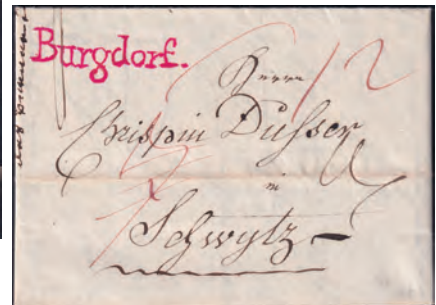 Burgdorf.
Herrn
Chrispin Düsser
in
Schwytz